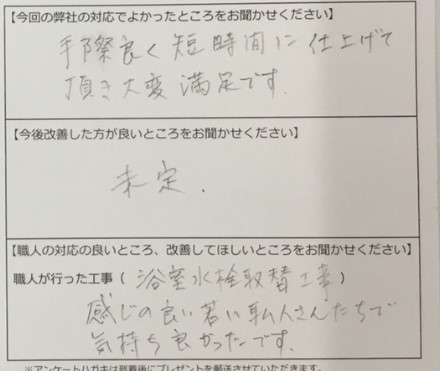 【今回の弊社の対応でよかったところをお聞かせください】
手際良く短時間に仕上げて
頂き大変満足です.
【今後改善した方が良いところをお聞かせください】
未定.
【職人の対応の良いところ、改善してほしいところをお聞かせください】
職人が行った工事（浴室水栓取替工事）
感じの良い若い職人さんたちで
気持ち良かったです.
※アンケートハガキは到着後にプレゼントを郵送させていただきます。